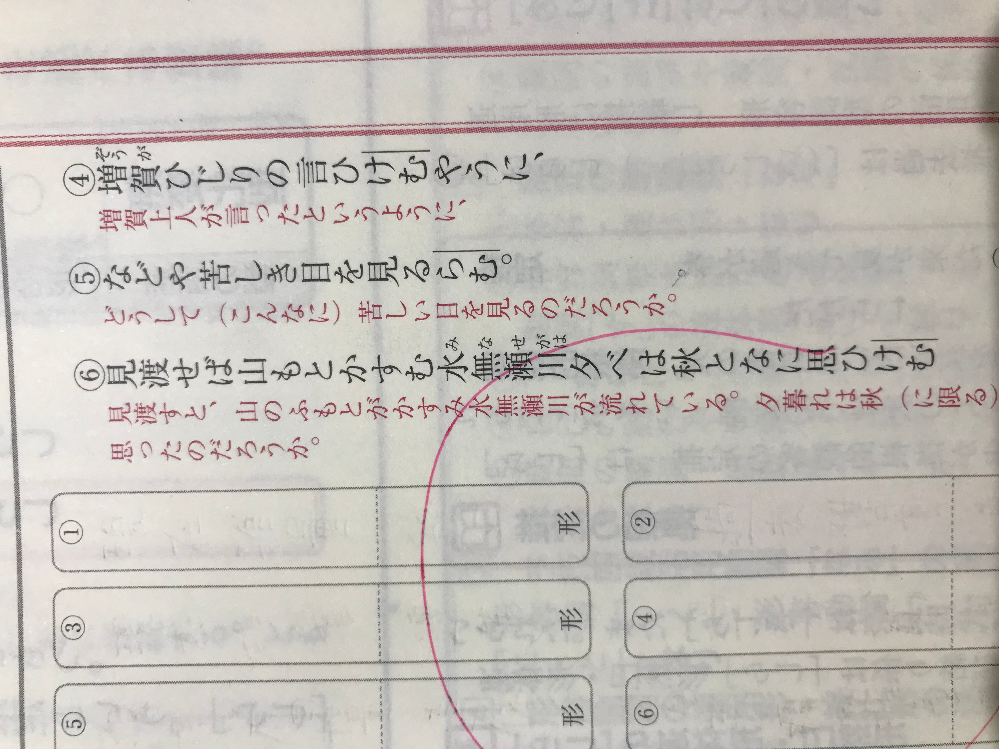 ④増賀ひじりの言ひけむやうに、
ぞうが
増賀上人が言ったというように、
⑤などや苦しき目を見るらむ。
どうして（こんなに）苦しい目を見るのだろうか。
⑥見渡せば山もとかすむ水無瀬川夕べは秋となに思ひけむ
みなせがは
見渡すと、山のふもとがかすみ水無瀬川が流れている。夕暮れは秋（に限る）
思ったのだろうか。
① 形
②
③ 形
④
⑤ 形
⑥